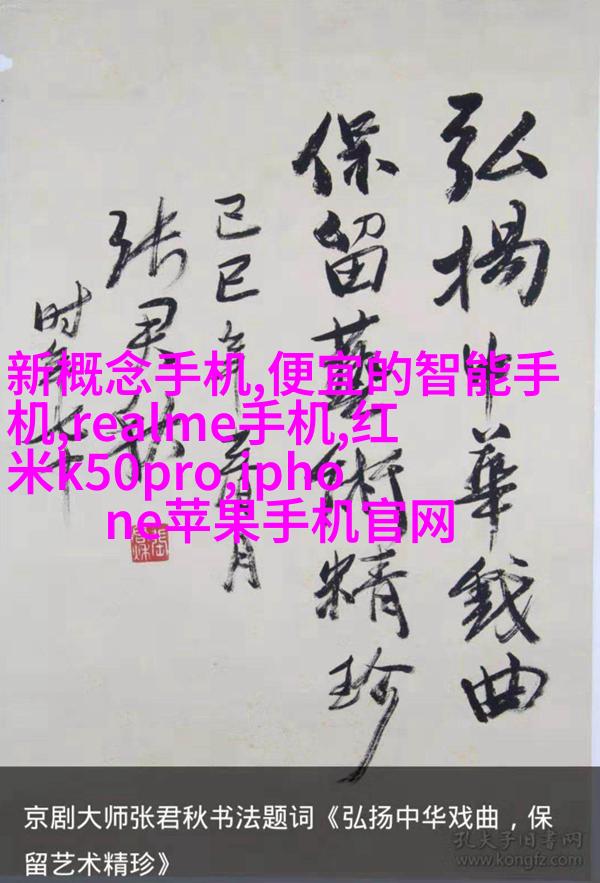 弘揚中華戏曲
保留藝術精珍
己巳年元月
张君秋
时年七十
新概念手机,便宜的智能手
机,realme手机,红
米k50pro,ipho
ne苹果手机官网
京剧大师张君秋书法题词《弘扬中华戏曲，保
留艺术精珍》
孔夫子旧书网
www.kongfz.com